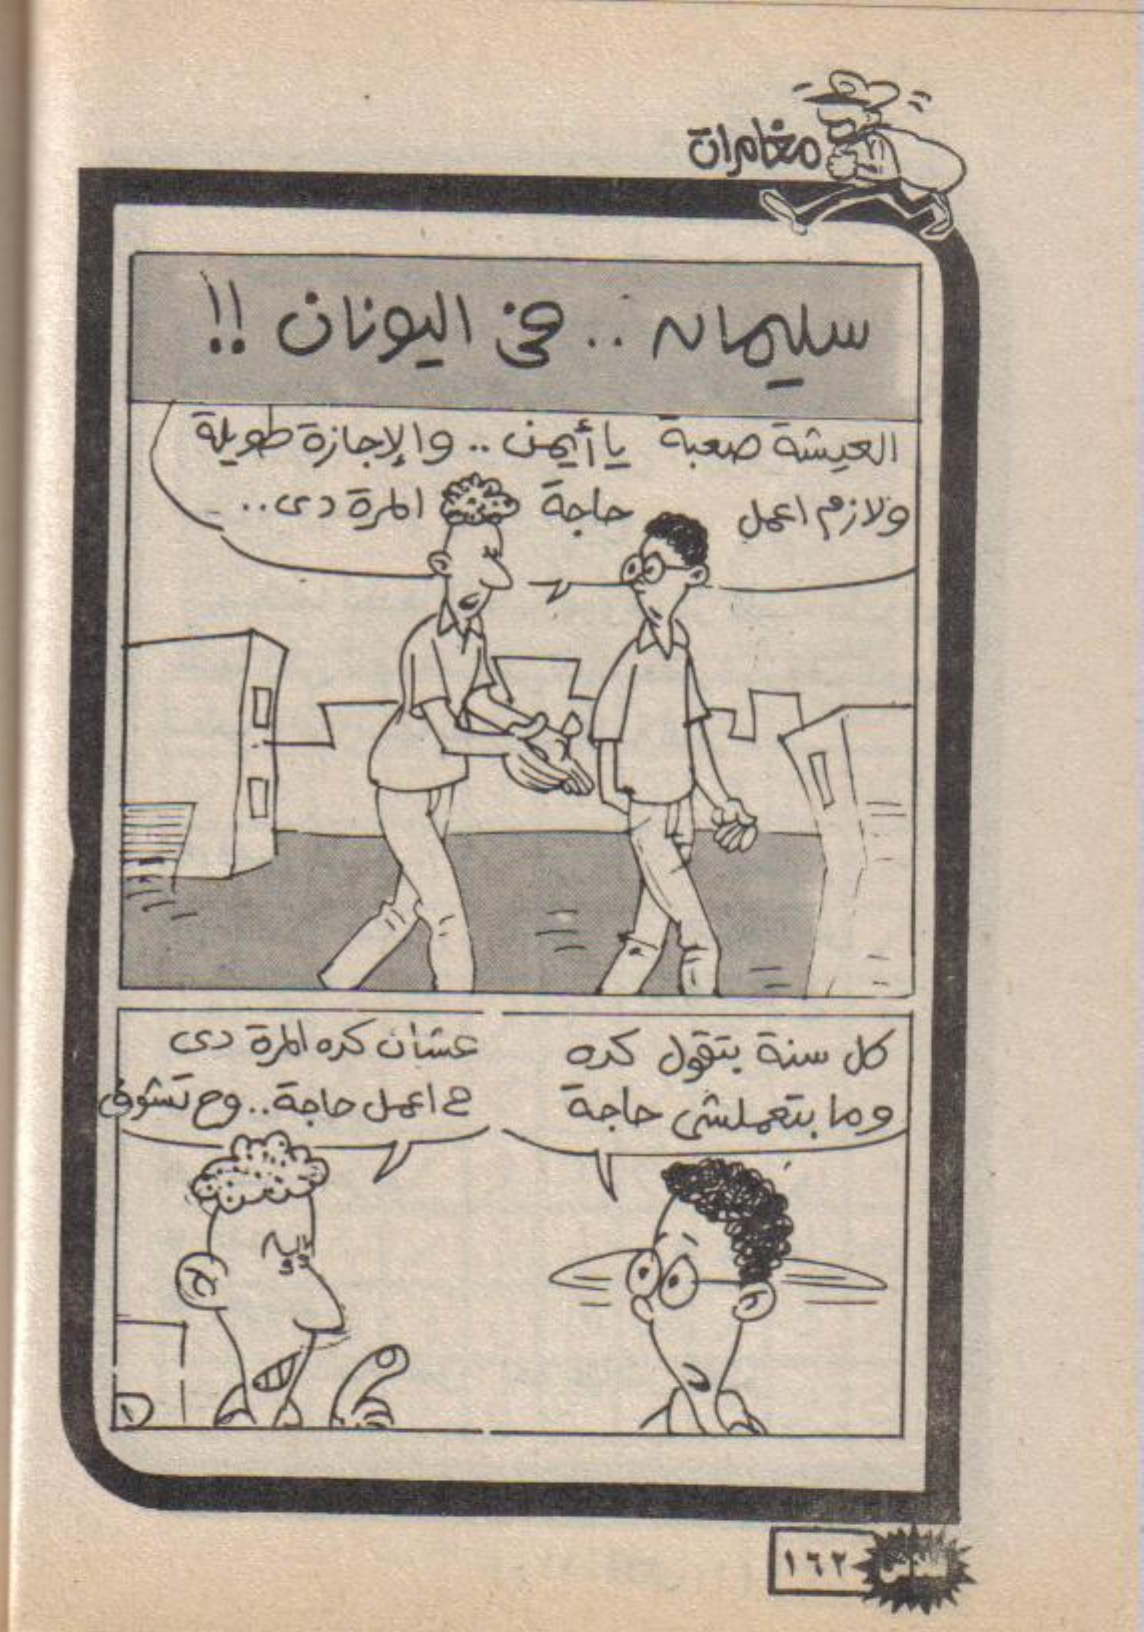 مغامرات
سليمان .. فى اليونان !!
العيشة صعبة يا أيمن .. والإجازة طويلة
ولازم اعمل حاجة المرة دى ..
كل سنة بتقول كده
وما بتعملشى حاجة
عشان كده المرة دى
ح اعمل حاجة .. وح تشوف
١٦٢
فلاش